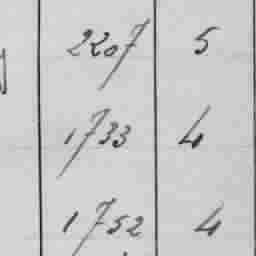 2207 5
1733 4
1752 4